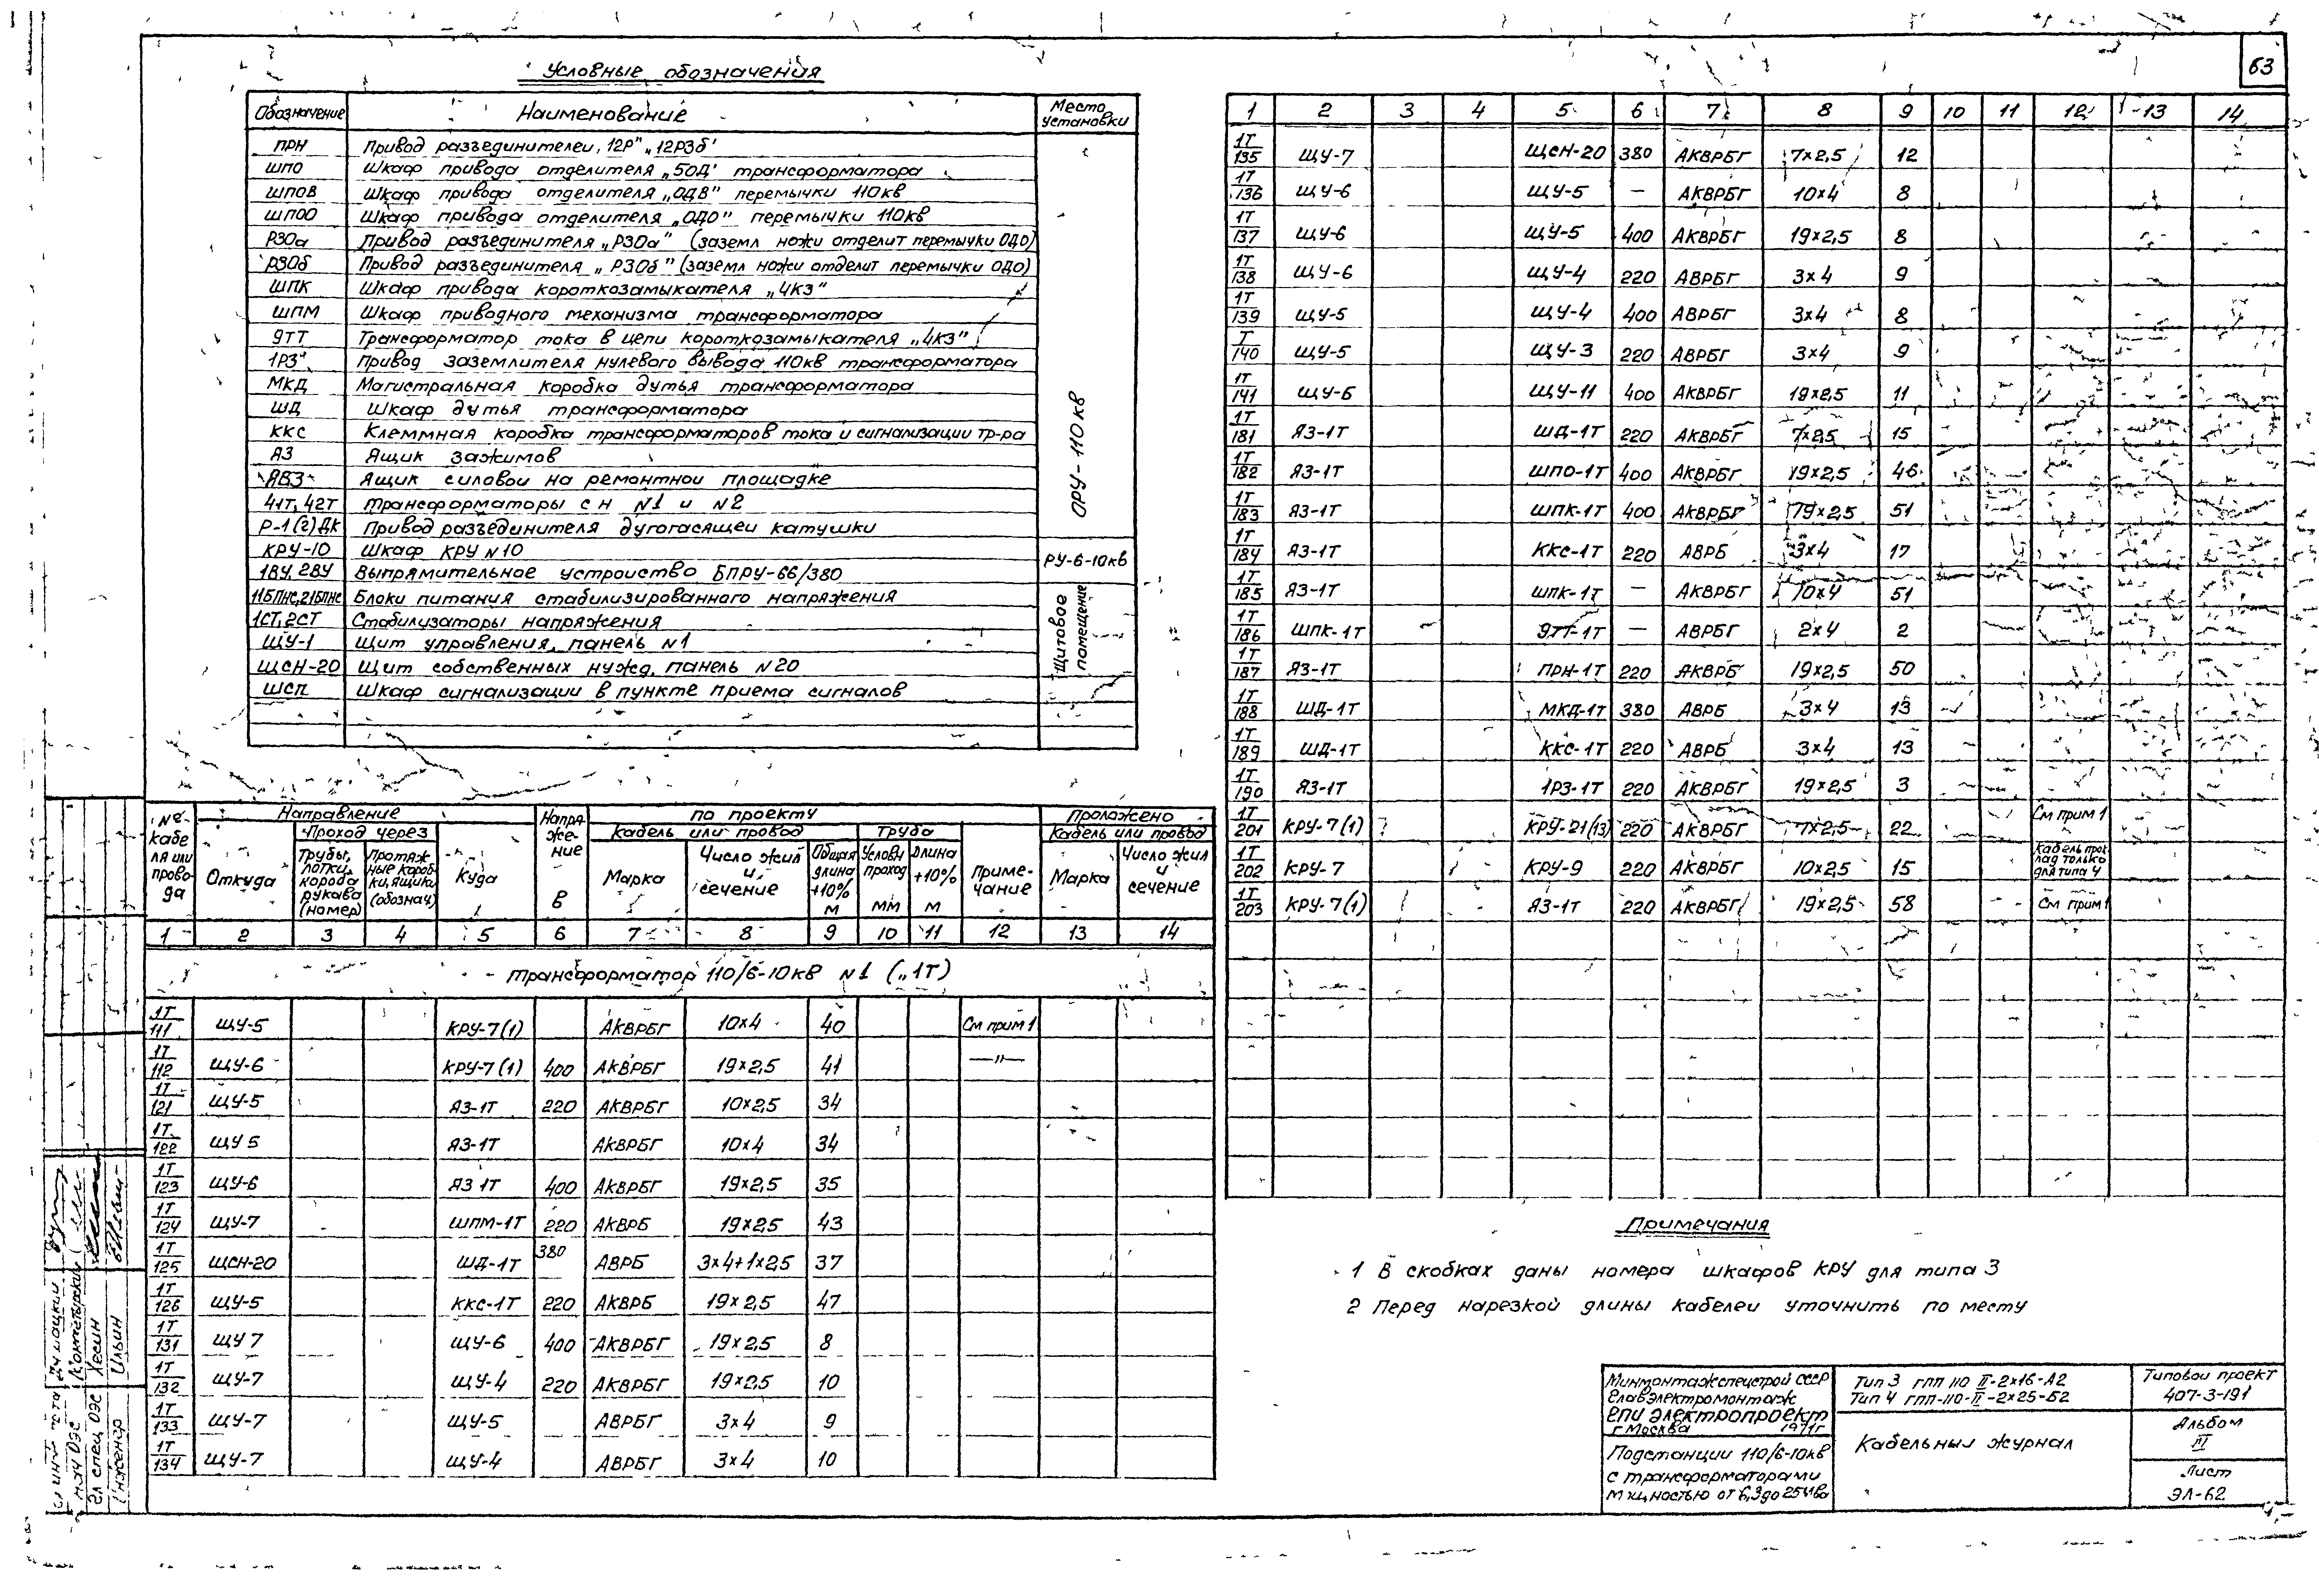 63
Условные обозначения
Обозначение Наименование Место установки
ПРН Привод разъединителей "12Р", "12РЗб"
ШПО Шкаф привода отделителя „5ОД" трансформатора
ШПОВ Шкаф привода отделителя „ОДВ" перемычки 110кв
ШПОО Шкаф привода отделителя „ОДО" перемычки 110кв
РЗОа Привод разъединителя „РЗОа" (заземл ножи отделит перемычки ОДО)
РЗОб Привод разъединителя „РЗОб" (заземл ножи отделит перемычки ОДО)
ШПК Шкаф привода короткозамыкателя „4КЗ"
ШПМ Шкаф приводного механизма трансформатора
9ТТ Трансформатор тока в цепи короткозамыкателя „4КЗ"
1РЗ Привод заземлителя нулевого вывода 110кв трансформатора
МКД Магистральная коробка дутья трансформатора
ШД Шкаф дутья трансформатора
ККС Клеммная коробка трансформаторов тока и сигнализации тр-ра
ЯЗ Ящик зажимов
ЯВЗ Ящик силовой на ремонтной площадке
41Т, 42Т Трансформаторы с н №1 и №2
Р-1(2)ДК Привод разъединителя дугогасящей катушки
ОРУ-110кв
КРУ-10 Шкаф КРУ №10
1ВУ, 2ВУ Выпрямительное устройство БПРУ-66/380
РУ-6-10кв
11БПНС, 21БПНС Блоки питания стабилизированного напряжения
1СТ, 2СТ Стабилизаторы напряжения
ЩУ-1 Щит управления, панель №1
ЩСН-20 Щит собственных нужд, панель №20
ШСП Шкаф сигнализации в пункте приема сигналов
Щитовое помещение
№ кабеля или провода Направление Напряжение В По проекту Проложено
Проход через Кабель или провод Труба Кабель или провод
Откуда Трубы, лотки, короба рукава (номер) Протяжные коробки, ящики (обознач) Куда Марка Число жил и сечение Общая длина +10% м Условн проход мм Длина +10% м Примечание Марка Число жил и сечение
1 2 3 4 5 6 7 8 9 10 11 12 13 14
Трансформатор 110/6-10кв №1 („1Т)
1Т/111 ЩУ-5 КРУ-7(1) АКВРБГ 10×4 40 См прим 1
1Т/112 ЩУ-6 КРУ-7(1) 400 АКВРБГ 19×2,5 41 —"—
1Т/121 ЩУ-5 ЯЗ-1Т 220 АКВРБГ 10×2,5 34
1Т/122 ЩУ 5 ЯЗ-1Т АКВРБГ 10×4 34
1Т/123 ЩУ-6 ЯЗ 1Т 400 АКВРБГ 19×2,5 35
1Т/124 ЩУ-7 ШПМ-1Т 220 АКВРБ 19×25 43
1Т/125 ЩСН-20 ШД-1Т 380 АВРБ 3×4+1×25 37
1Т/126 ЩУ-5 ККС-1Т 220 АКВРБ 19×2,5 47
1Т/131 ЩУ 7 ЩУ-6 400 АКВРБГ 19×2,5 8
1Т/132 ЩУ-7 ЩУ-4 220 АКВРБГ 19×2,5 10
1Т/133 ЩУ-7 ЩУ-5 АВРБГ 3×4 9
1Т/134 ЩУ-7 ЩУ-4 АВРБГ 3×4 10
1 2 3 4 5 6 7 8 9 10 11 12 13 14
1Т/135 ЩУ-7 ЩСН-20 380 АКВРБГ 7×2,5 12
1Т/136 ЩУ-6 ЩУ-5 — АКВРБГ 10×4 8
1Т/137 ЩУ-6 ЩУ-5 400 АКВРБГ 19×2,5 8
1Т/138 ЩУ-6 ЩУ-4 220 АВРБГ 3×4 9
1Т/139 ЩУ-5 ЩУ-4 400 АВРБГ 3×4 8
Т/140 ЩУ-5 ЩУ-3 220 АВРБГ 3×4 9
1Т/141 ЩУ-6 ЩУ-11 400 АКВРБГ 19×2,5 11
1Т/181 ЯЗ-1Т ШД-1Т 220 АКВРБГ 7×2,5 15
1Т/182 ЯЗ-1Т ШПО-1Т 400 АКВРБГ 19×2,5 46
1Т/183 ЯЗ-1Т ШПК-1Т 400 АКВРБГ 19×2,5 51
1Т/184 ЯЗ-1Т ККС-1Т 220 АВРБ 3×4 17
1Т/185 ЯЗ-1Т ШПК-1Т — АКВРБГ 10×4 51
1Т/186 ШПК-1Т 9ТТ-1Т — АВРБГ 2×4 2
1Т/187 ЯЗ-1Т ПРН-1Т 220 АКВРБ 19×2,5 50
1Т/188 ШД-1Т МКД-1Т 380 АВРБ 3×4 13
1Т/189 ШД-1Т ККС-1Т 220 АВРБ 3×4 13
1Т/190 ЯЗ-1Т 1РЗ-1Т 220 АКВРБГ 19×2,5 3
1Т/201 КРУ-7(1) КРУ-21(13) 220 АКВРБГ 7×2,5 22 См прим 1
1Т/202 КРУ-7 КРУ-9 220 АКВРБГ 10×2,5 15 Кабель проклад только для типа 4
1Т/203 КРУ-7(1) ЯЗ-1Т 220 АКВРБГ 19×2,5 58 См прим 1
Примечания
1 В скобках даны номера шкафов КРУ для типа 3
2 Перед нарезкой длины кабелей уточнить по месту
Минмонтажспецстрой СССР
Главэлектромонтаж
ГПИ Электропроект
г Москва 1971г
Подстанции 110/6-10кв
с трансформаторами
мощностью от 6,3 до 25Мва
Тип 3 ГПП 110 II-2×16-А2
Тип 4 ГПП-110-II-2×25-Б2
Кабельный журнал
Типовой проект
407-3-191
Альбом
III
Лист
ЭЛ-62
нач ОЭС
Гл спец ОЭС Хесин
Инженер Ильин